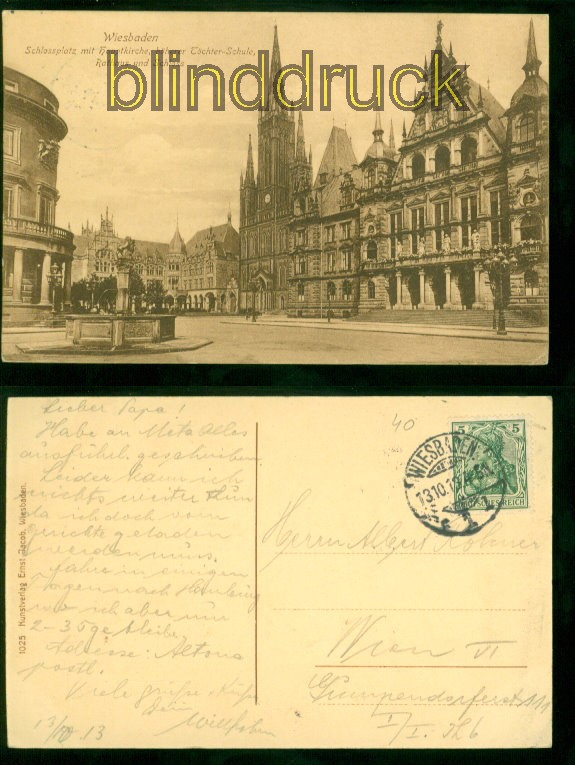 Wiesbaden
Schlossplatz mit Hauptkirche, höherer Töchter-Schule,
Rathaus und Schloss
blinddruck
Lieber Papa!
Habe an Meta Alles
ausführl. geschrieben
Leider kann ich
nichts weiter tun
da ich doch vom
Gerichte geladen
werden muss.
Fahre in einigen
Tagen nach Hamburg
wo ich aber nur
2-3 Tge bleibe.
Adresse: Altona
postl.
Viele Grüße u Küße
Dein
13/10 13
1025 Kunstverlag Ernst Jacob, Wiesbaden.
40
5 5
WIESBADEN
13.10.13
DEUTSCHES REICH
Herrn Albert
Wien VI
Gumpendorferstr 111
I/I. Th 6